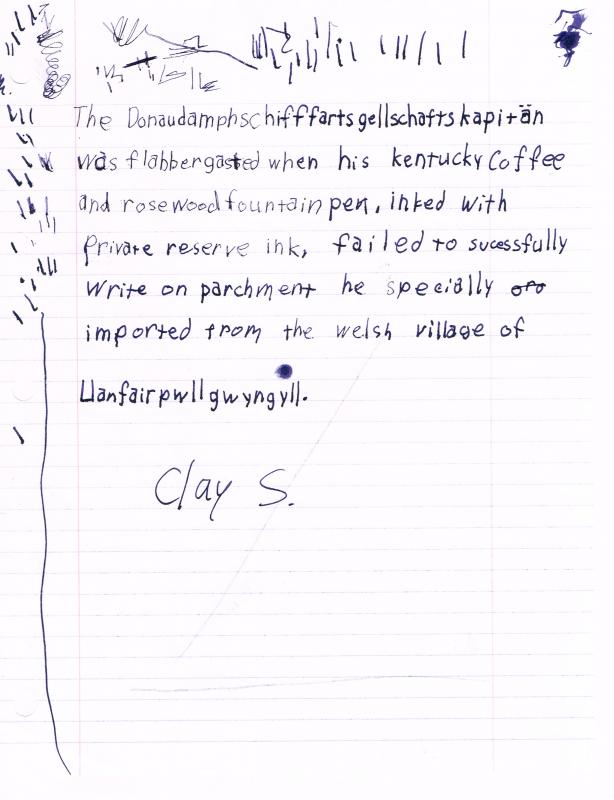 The Donaudamphschifffartsgellschaftskapitän
was flabbergasted when his kentucky Coffee
and rosewood fountain pen, inked with
Private reserve ink, failed to sucessfully
Write on parchment he specially
imported from the welsh village of
Llanfairpwllgwyngyll.
Clay S.